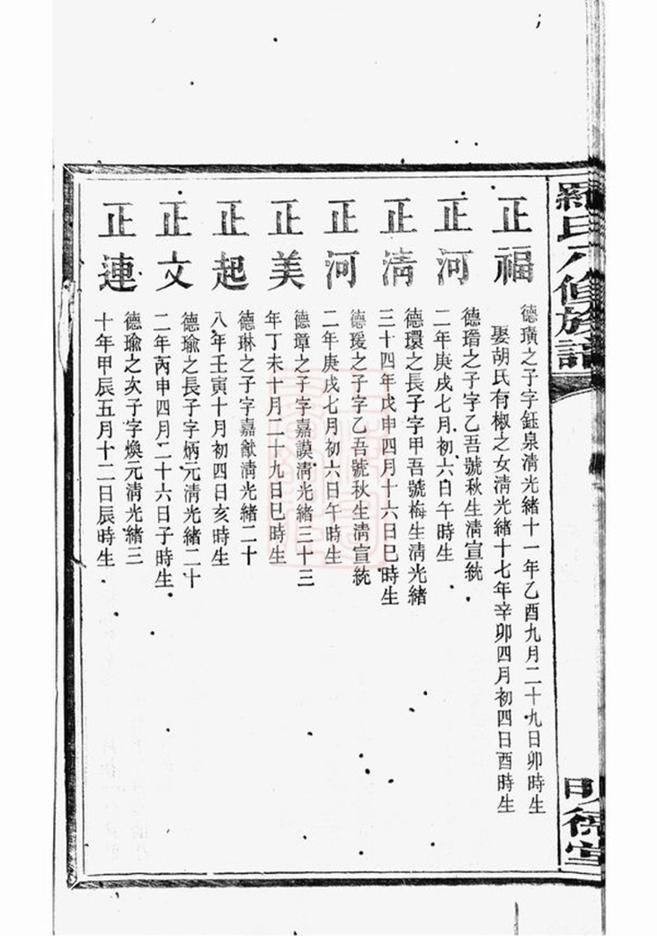 羅氏八修族譜
明德堂
正福
德璜之子字鈺泉淸光緖十一年乙酉九月二十九日卯時生
娶胡氏有椒之女淸光緖十七年辛卯四月初四日酉時生
正河
德瑨之子字乙吾號秋生淸宣統
二年庚戌七月初六日午時生
正淸
德環之長子字甲吾號梅生淸光緖
三十四年戊申四月十六日巳時生
正河
德瑷之子字乙吾號秋生淸宣統
二年庚戌七月初六日午時生
正美
德璋之子字嘉謨淸光緖三十三
年丁未十月二十九日巳時生
正起
德琳之子字嘉猷淸光緖二十
八年壬寅十月初四日亥時生
正文
德瑜之長子字炳元淸光緖二十
二年丙申四月二十六日子時生
正連
德瑜之次子字煥元淸光緖三
十年甲辰五月十二日辰時生